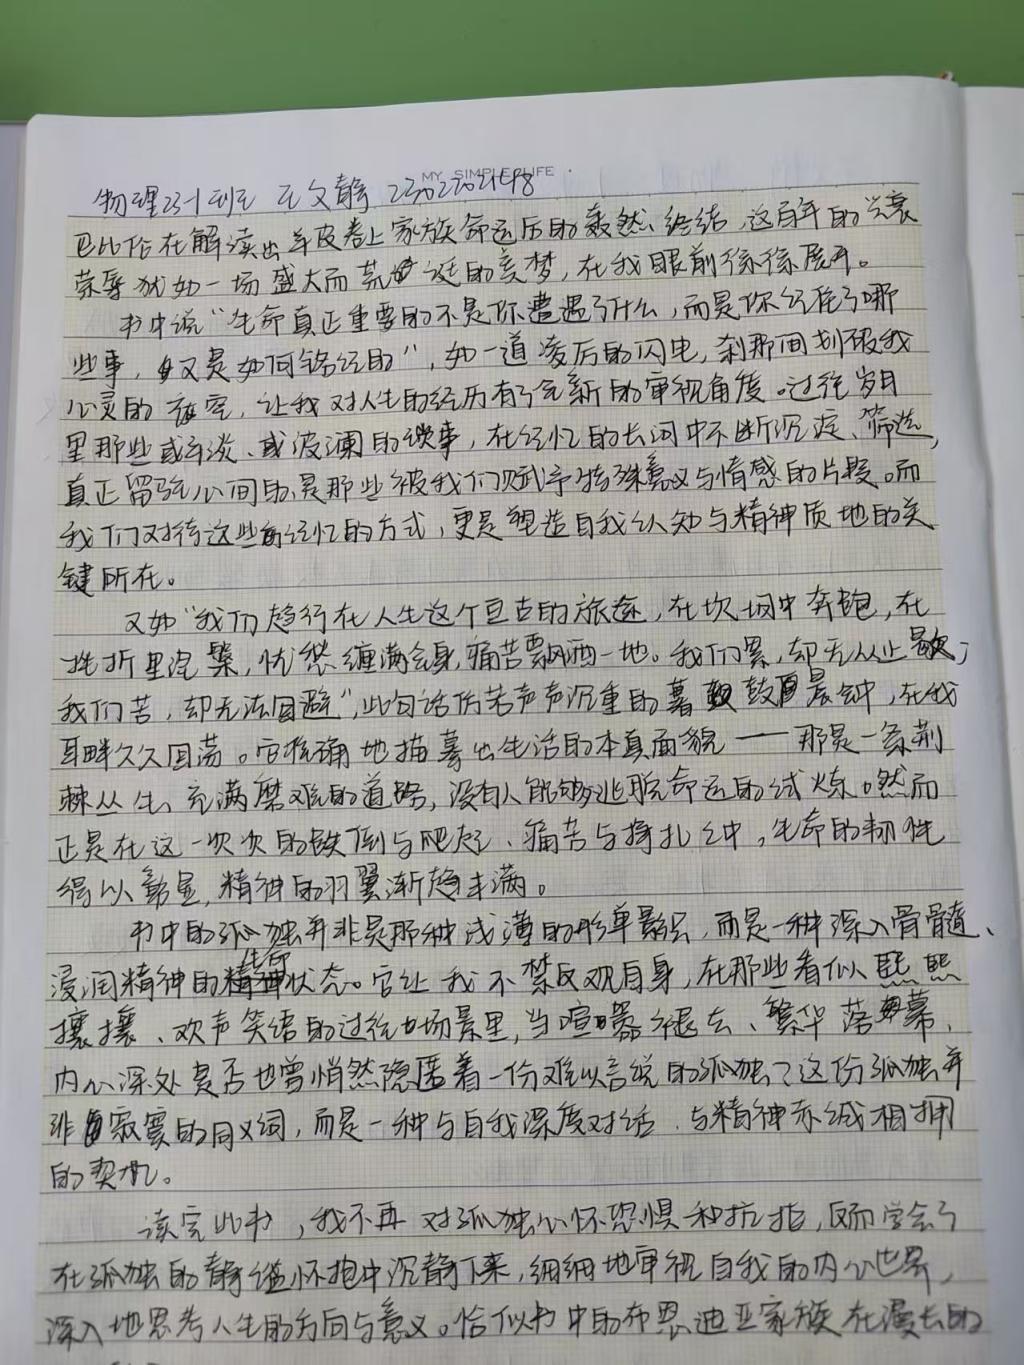 MY SIMPLE LIFE
物理23-1班 王文静
巴比伦在解读出羊皮卷上家族命运后的轰然终结,这百年的兴衰
荣辱犹如一场盛大而荒诞的美梦,在我眼前徐徐展开。
书中说“生命真正重要的不是你遭遇了什么,而是你记住了哪
些事,又是如何铭记的”,如一道凌厉的闪电,刹那间划破我
心灵的夜空,让我对人生的经历有了全新的审视角度。过往岁月
里那些或平淡、或波澜的往事,在记忆的长河中不断沉淀、筛选,
真正留驻心间的,是那些被我们赋予特殊意义与情感的片段。而
我们对待这些记忆的方式,更是塑造自我认知与精神质地的关
键所在。
又如“我们趋行在人生这个亘古的旅途,在坎坷中奔跑,在
挫折里涅槃,忧愁缠满全身,痛苦飘洒一地。我们累,却无从止歇;
我们苦,却无法回避”,此句话仿若声声沉重的暮鼓晨钟,在我
耳畔久久回荡。它精确地描摹出生活的本真面貌——那是一条荆
棘丛生、充满磨难的道路,没有人能够逃脱命运的试炼。然而
正是在这一次次的跌倒与爬起、痛苦与挣扎之中,生命的韧性
得以彰显,精神的羽翼渐趋丰满。
书中的孤独并非是那种浅薄的形单影只,而是一种深入骨髓、
浸润精神的生命状态。它让我不禁反观自身,在那些看似熙熙
攘攘、欢声笑语的过往场景里,当喧嚣褪去、繁华落幕,
内心深处是否也曾悄然隐匿着一份难以言说的孤独?这份孤独并
非寂寞的同义词,而是一种与自我深度对话、与精神赤诚相拥
的契机。
读完此书,我不再对孤独心怀恐惧和抗拒,反而学会了
在孤独的静谧怀抱中沉静下来,细细地审视自我的内心世界,
深入地思考人生的方向与意义。恰似书中的布恩迪亚家族在漫长的